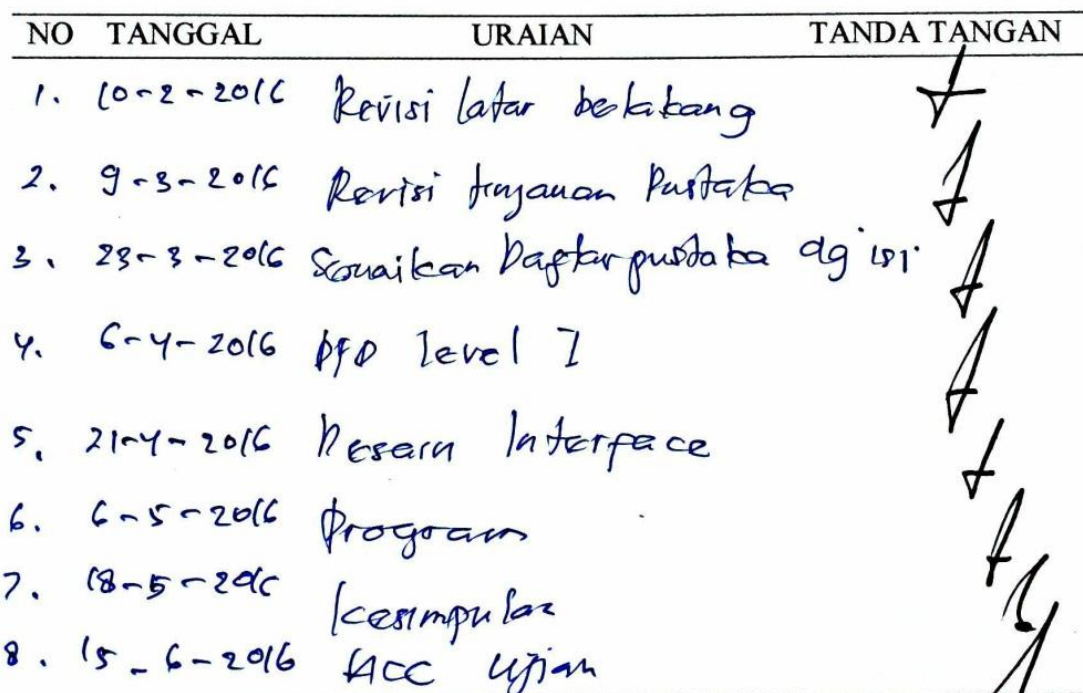 NO TANGGAL URAIAN TANDA TANGAN
1. 10-2-2016 Revisi latar belakang
2. 9-3-2016 Revisi tinjauan Pustaka
3. 23-3-2016 Sesuaikan Daftar pustaka dg isi
4. 6-4-2016 DFD level 1
5. 21-4-2016 Desain Interface
6. 6-5-2016 Program
7. 18-5-2016 Kesimpulan
8. 15-6-2016 ACC Ujian